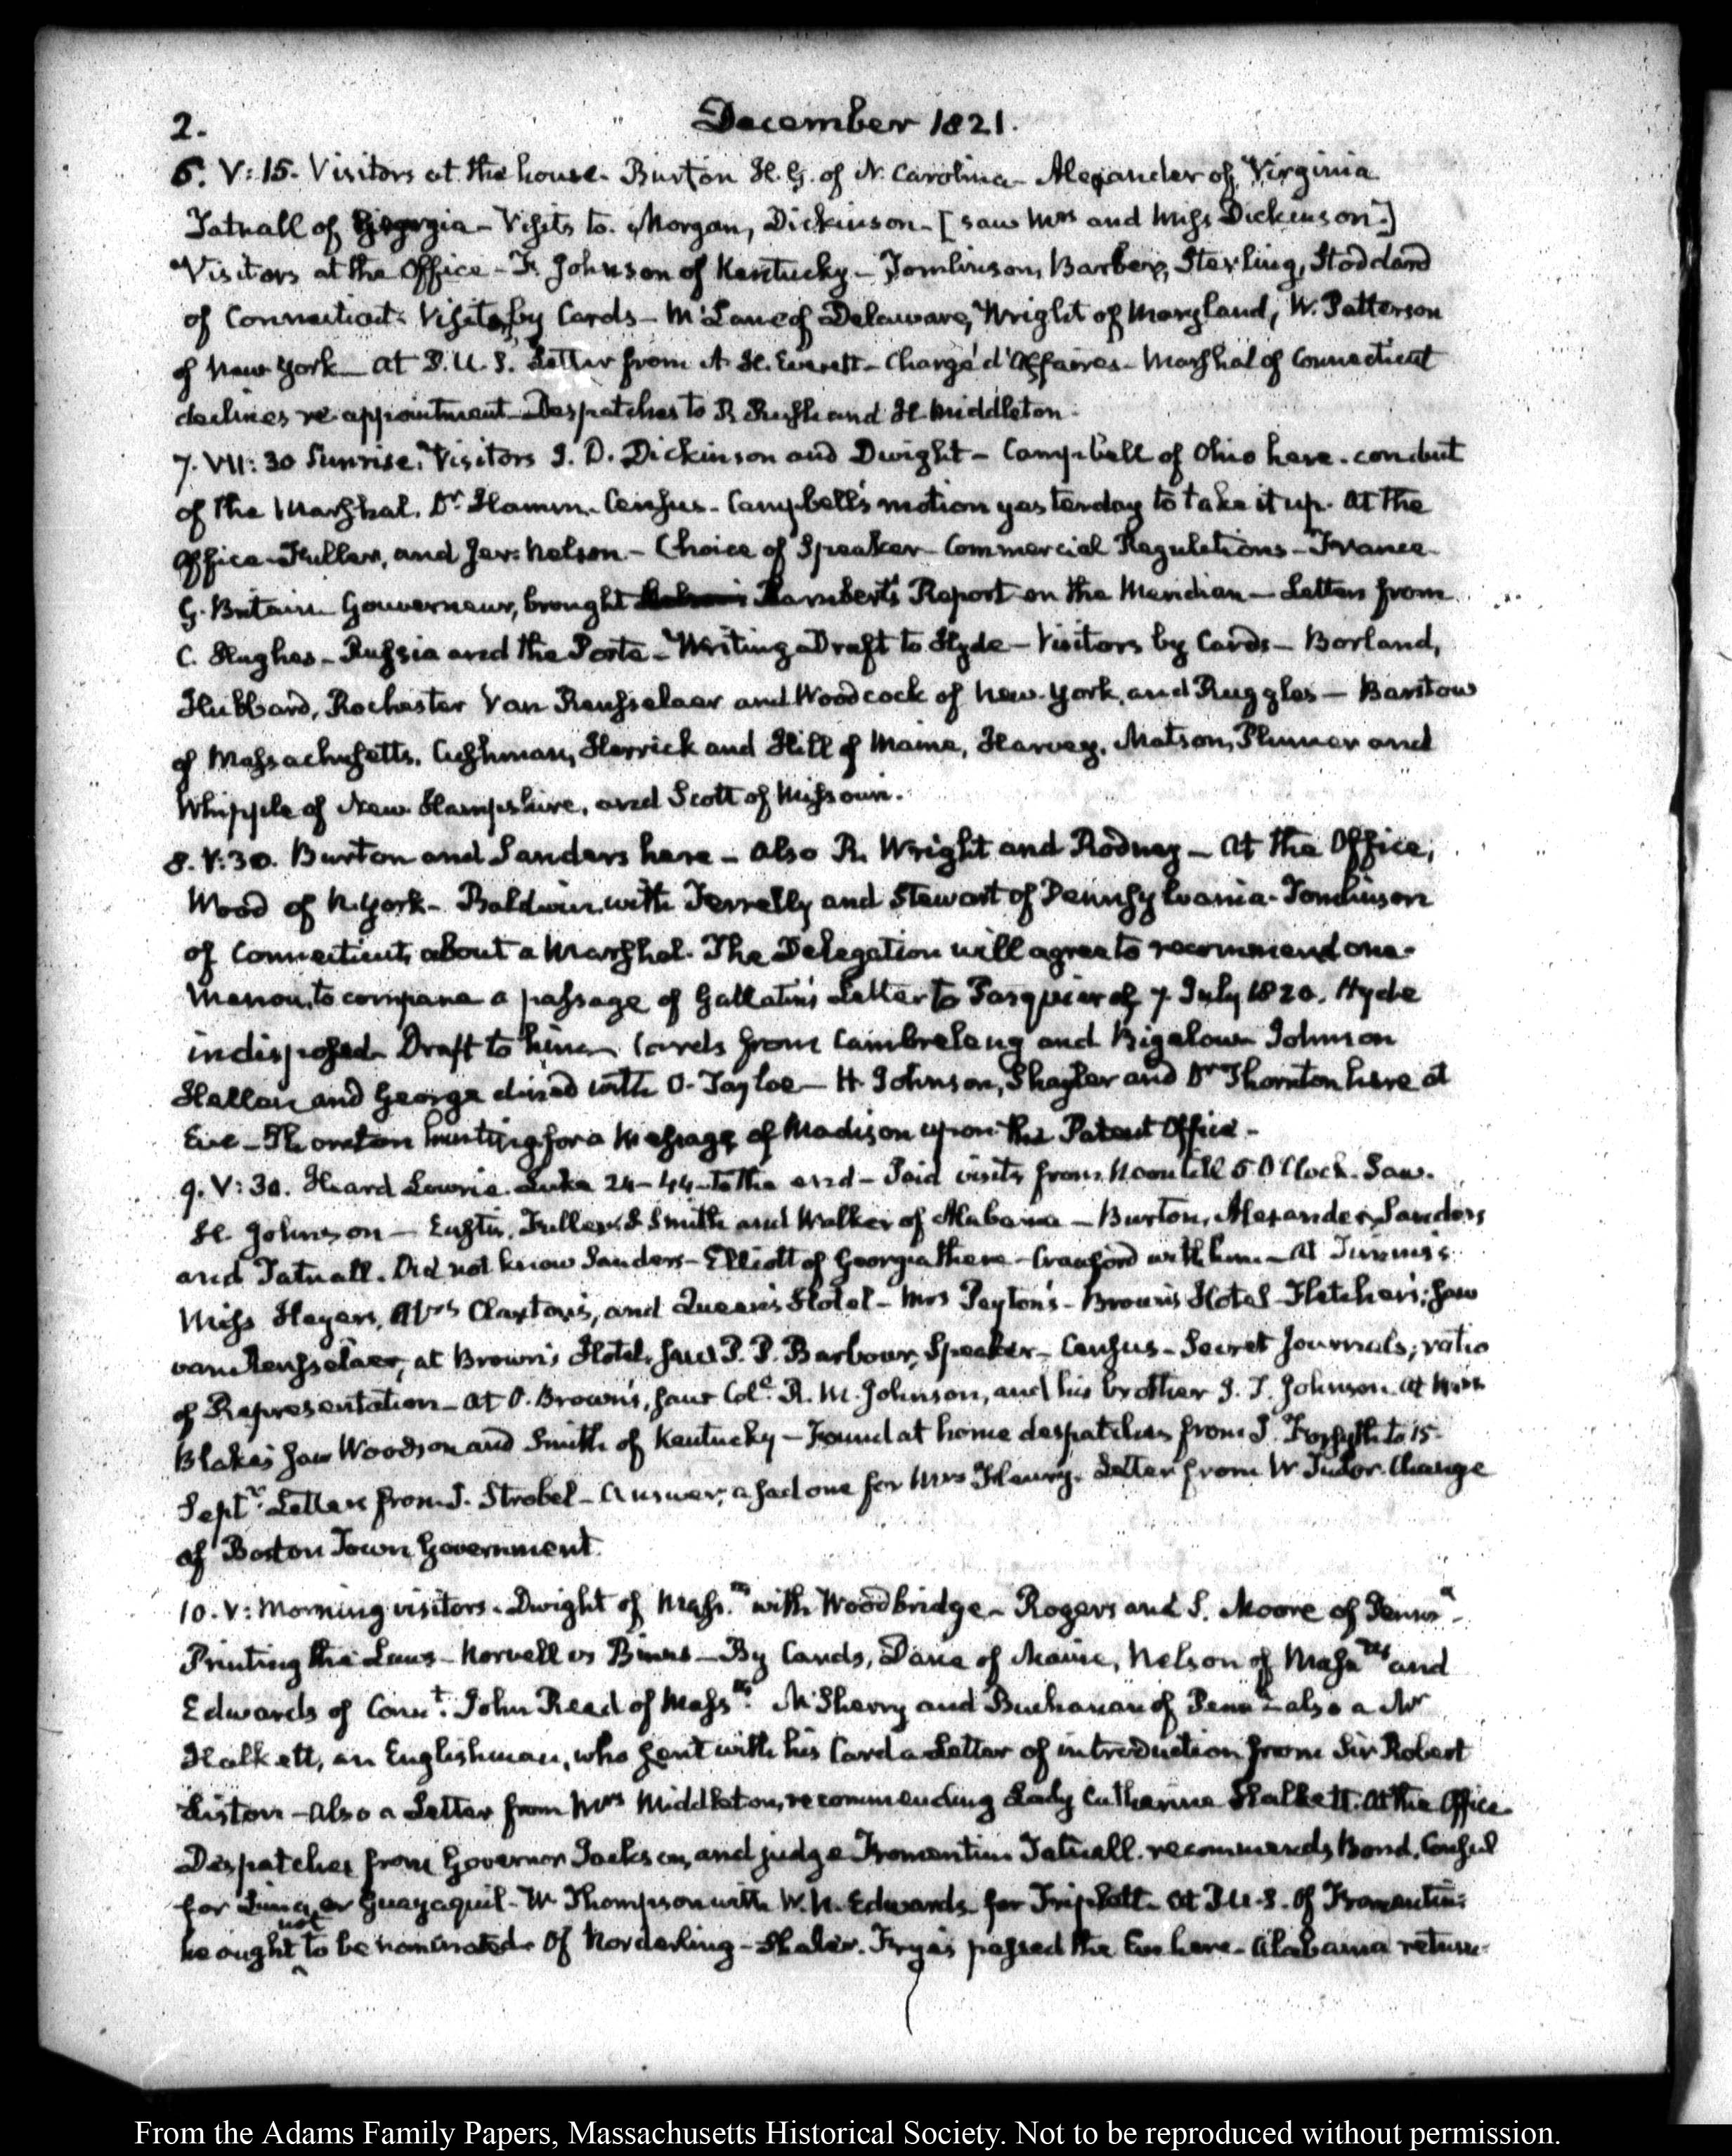 2.
December 1821.
6. V:15. Visitors at the house. Burton H. G. of N. Carolina - Alexander of Virginia
Tatnall of Georgia - Visits to Morgan, Dickinson. [saw Mrs and Miss Dickinson.]
Visitors at the Office - F. Johnson of Kentucky - Tomlinson, Barber, Sterling, Stoddard
of Connecticut. Visits by Cards - McLane of Delaware, Wright of Maryland, W. Patterson
of New York - at P.U.S. Letter from A. H. Everett - Chargé d'Affaires - Marshal of Connecticut
declines re appointment - Despatches to R. Rush and H. Middleton.
7. VII:30 Sunrise. Visitors J. D. Dickinson and Dwight - Campbell of Ohio here. conduct
of the Marshal. Dr. Hamm. Census - Campbell's motion yesterday to take it up. At the
Office - Fuller, and Jer: Nelson - Choice of Speaker - Commercial Regulations - France
G. Britain Gouverneur, brought Lambert's Report on the Meridian - Letters from
C. Hughes - Russia and the Porte - Writing Draft to Hyde - Visitors by Cards - Borland,
Hubbard, Rochester Van Rensselaer and Woodcock of New-York, and Ruggles - Barstow
of Massachusetts, Cushman, Herrick and Hill of Maine, Harvey, Matson, Plumer and
Whipple of New Hampshire, and Scott of Missouri.
8. V:30. Burton and Sanders here - also R. Wright and Rodney - At the Office,
Wood of N. York - Baldwin with Ferrelly and Stewart of Pennsylvania - Tomlinson
of Connecticut, about a Marshal. The Delegation will agree to recommend one.
Menou, to compare a passage of Gallatin's Letter to Pasquier of 7. July 1820. Hyde
indisposed. Draft to him. Cards from Cambreleng and Bigelow - Johnson
Hellen and George dined with O. Tayloe - H. Johnson, Shayler and Dr Thornton here at
Eve - Thornton hunting for a Message of Madison upon the Patent Office -
9. V:30. Heard Lowrie. Luke 24-44 - to the end - Paid visits from Noon till 5 O'Clock. Saw.
H. Johnson - Eustis, Fuller, Smith and Walker of Alabama - Burton, Alexander, Sanders
and Tatnall. Did not know Sanders - Elliott of Georgia there - Crawford with him - At
Miss Heyers, Mrs Claxton's, and Queen's Hotel - Mrs Peyton's - Brown's Hotel - Fletcher's; saw
van Rensselaer, at Brown's Hotel, saw P. P. Barbour, Speaker - Census - Secret Journals; ratio
of Representation - at O. Brown's, saw Col. R. M. Johnson, and his brother J. T. Johnson. at Mrs
Blake's saw Woodson and Smith of Kentucky - Found at home despatches from J. Forsyth to 15.
Septr. Letters from J. Strobel - Answer; a sad one for Mrs Henry. Letter from W. Tudor. Change
of Boston Town Government.
10. V: Morning visitors. Dwight of Mass. with Woodbridge - Rogers and S. Moore of Penns a -
Printing the Laws - Norvell vs Binns - By Cards, Dane of Maine, Nelson of Massts and
Edwards of Connt. John Reed of Massts. McSherry and Buchanan of Penna - also a Mr
Halkett, an Englishman, who sent with his Card a Letter of introduction from Sir Robert
Liston - also a Letter from Mrs Middleton, recommending Lady Catherine Halkett. At the Office
Despatches from Governor Jackson, and judge Fromentin Tatnall. recommends Bond, Consul
for Lima or Guayaquil - W. Thompson with W. N. Edwards for Triplett. at P.U.S. Of Fromentin:
he ought not to be nominated. Of Norderling - Shaler. Frye's passed the Eve here - Alabama return
From the Adams Family Papers, Massachusetts Historical Society. Not to be reproduced without permission.